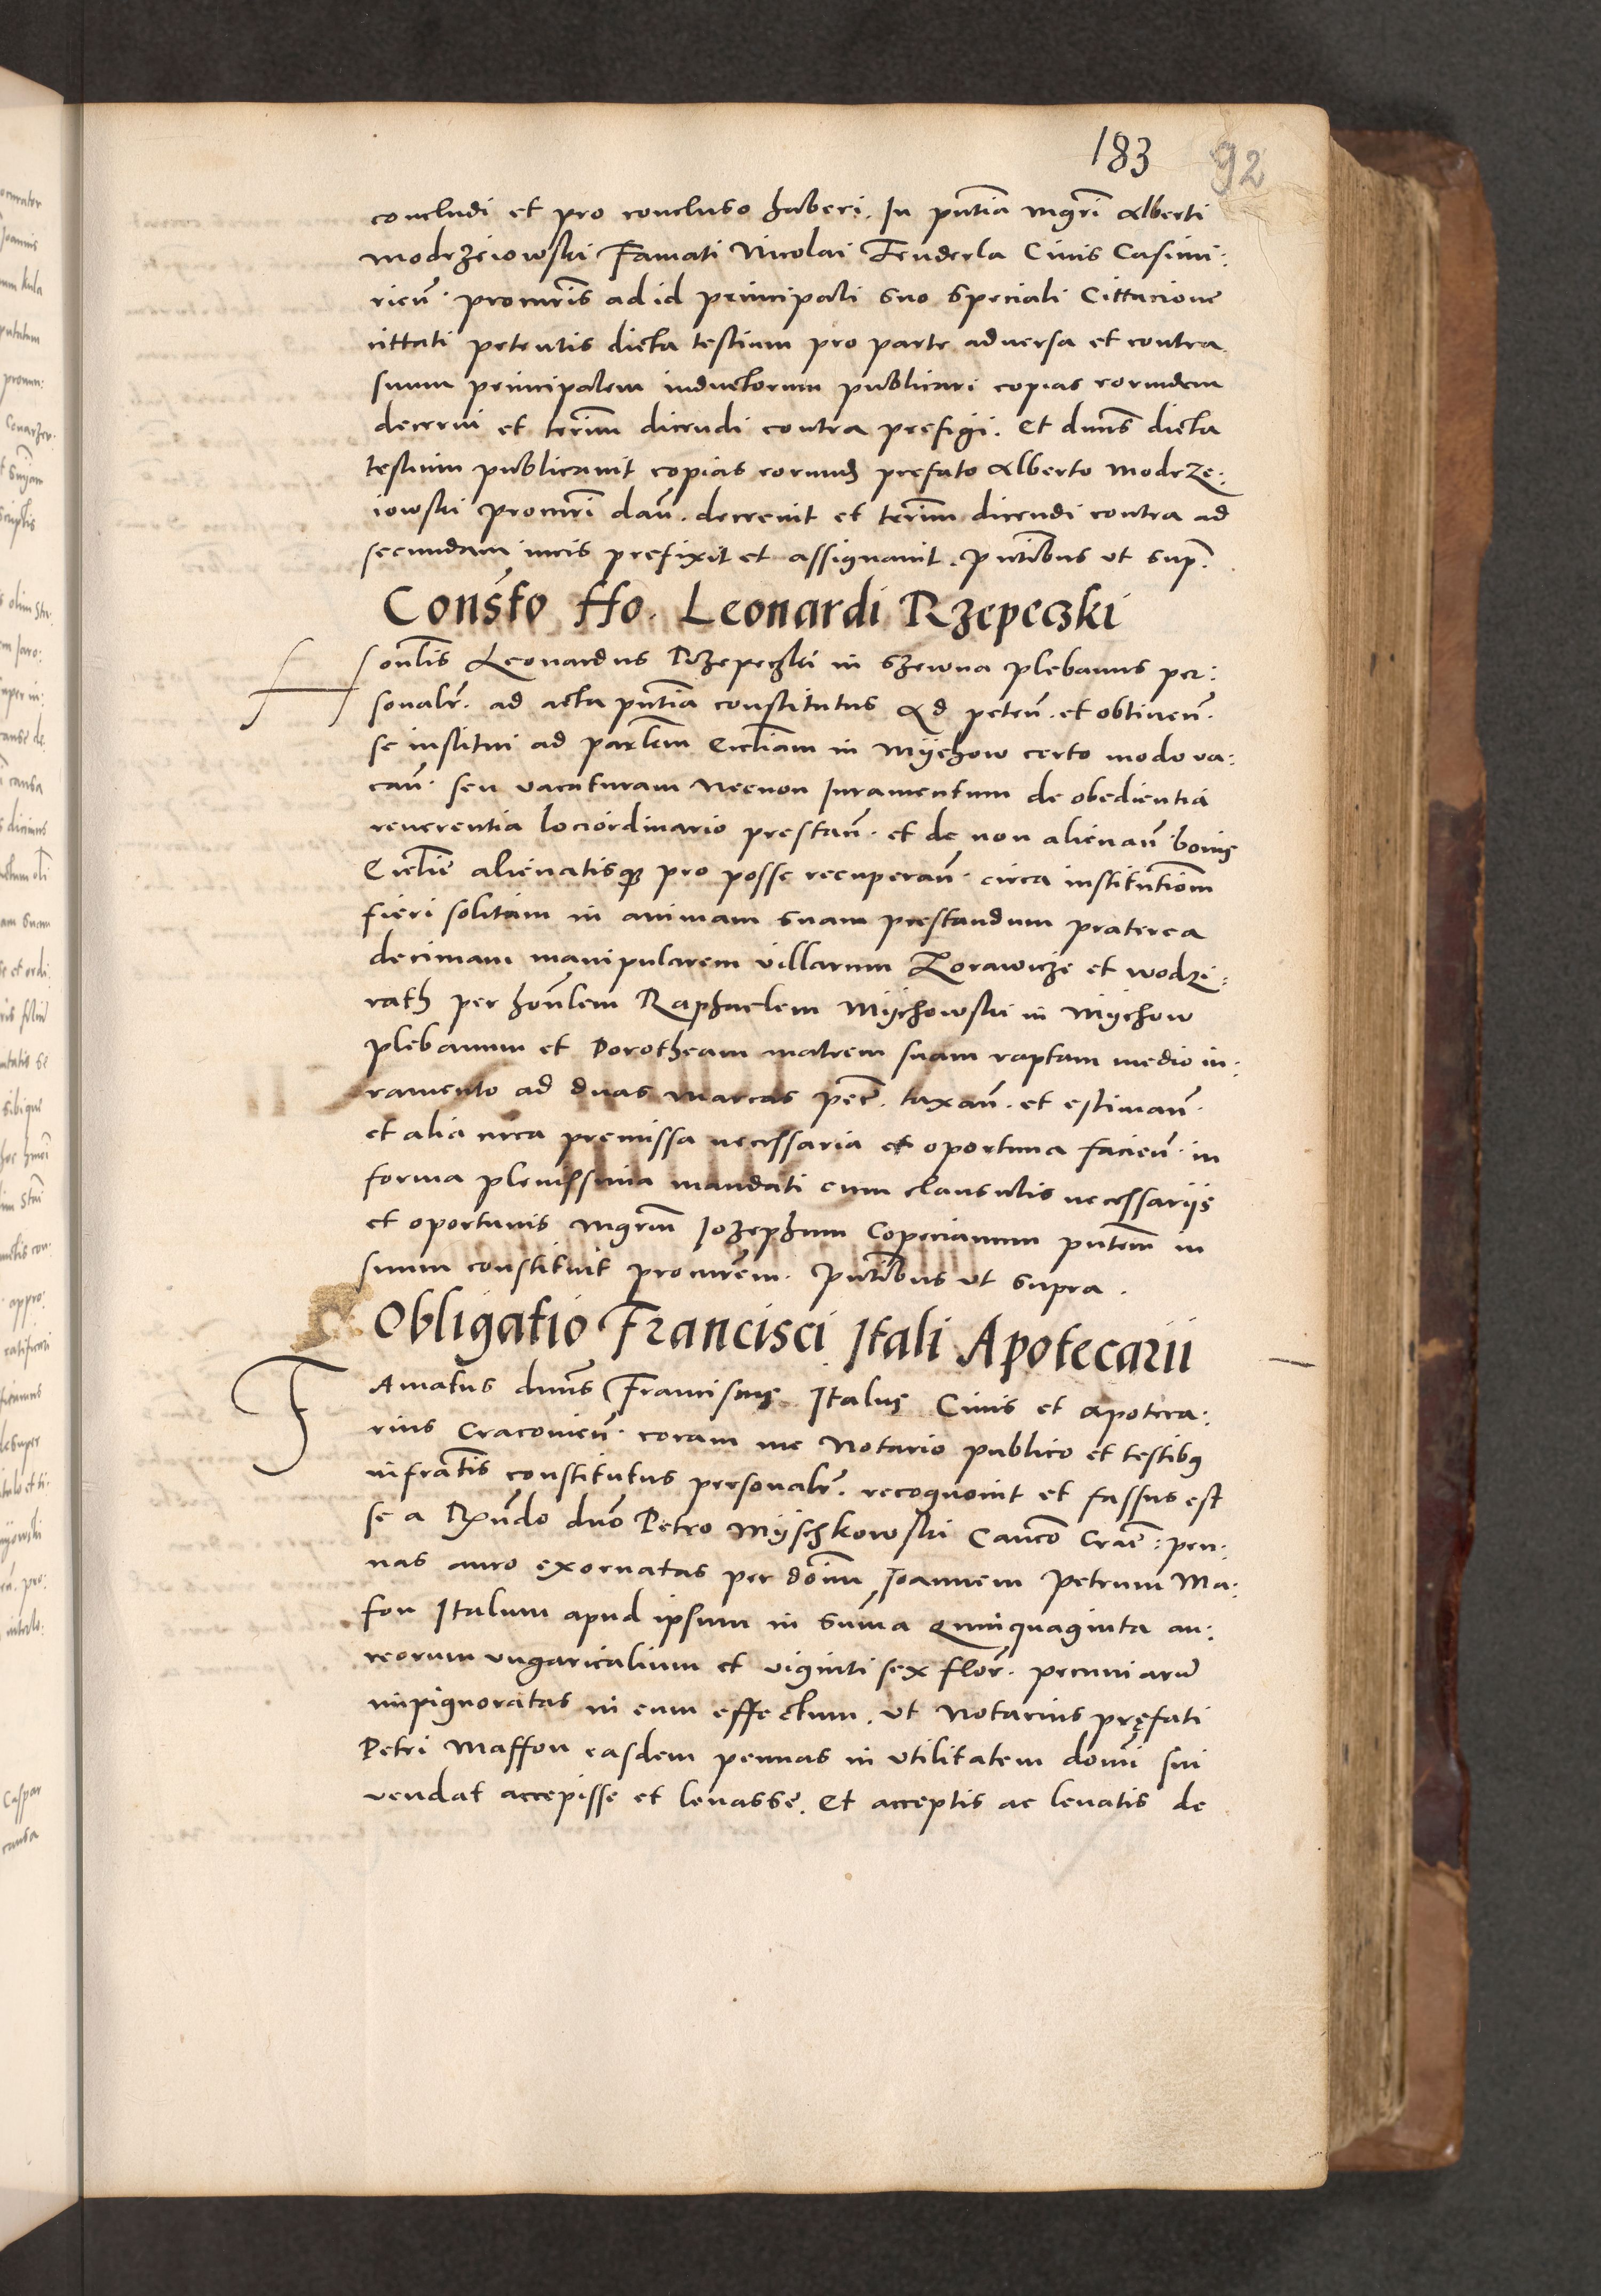 183 92
concludi et pro concluso haberi. In pn̄tia mgr̄i Alberti
Modrzeiowski Famati Nicolai Fenderla Ciuis Casimi:
rien̄. procur̄is ad id principali suo speciali Cittacione
cittati petentis dicta testium pro parte aduersa et contra
suum principalem inductorum publicari copias eorundem
decerni et ter̄im dicendi contra prefigi. Et dnūs dicta
testium publicauit copias eorund prefato Alberto Modrze:
iowski procur̄i dan̄. decreuit et ter̄im dicendi contra ad
secundam iuris prefixit et assignauit. Pn̄tibus vt sup.
Consto Ho. Leonardi Rzepeczki
Honlis Leonardus Rzepeczki in Szewna plebanus per:
sonalr̄. ad acta pn̄tia constitutus Ad peten̄. et obtinen̄.
se institui ad par̄lem Eccliam in Mychow certo modo va:
can̄. seu vacaturam Necnon Iuramentum de obedientia
reuerentia lociordinario prestan̄. et de non alienan̄ bonis
Ecclie alienatisq pro posse recuperan̄. circa institutiom
fieri solitam in animam suam prestandum praterea
decimam manipularem villarum Zorawicze et Wodzi:
rath per hon̄lem Raphaelem Mychowski in Mychow
plebanum et Dorotheam matrem suam raptam medio iu:
ramento ad duas marcas pec̄. taxan̄. et estiman̄.
et alia circa premissa necessaria et oportuna facien̄. in
forma plenissima mandati cum clausulis necessariis
et oportunis Mgrm̄ Iozephum Copecianum pn̄tem in
suum constituit procur̄em. Pn̄tibus vt supra.
Obligatio Francisci Itali Apotecarii
FAmatus dnūs Franciscus Italus Ciuis et Apoteca:
rius Cracouien̄. coram me Notario publico et testibus
infrātis constitutus personalr̄. recognouit et fassus est
se a Rn̄do dnō Petro Myschkowski Canco Crac̄: pen:
nas auro exornatas per dom̄ Ioannem Petrum Ma:
fon Italum apud ipsum in sum̄a Quinquaginta au:
reorum vngaricalium et viginti sex flor̄. pecuniarū
impignoratas in eum effectum. vt Notarius pręfati
Petri Maffon easdem pennas in vtilitatem domi sui
vendat accepisse et leuasse. Et acceptis ac leuatis de